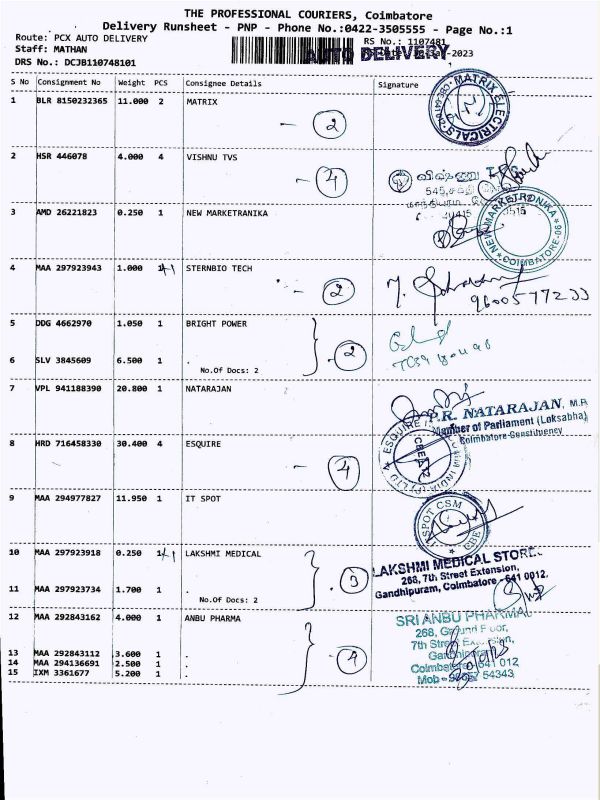 THE PROFESSIONAL COURIERS, Coimbatore
Delivery Runsheet - PNP - Phone No.:0422-3505555 - Page No.:1
Route: PCX AUTO DELIVERY
RS No.: 1107481
Staff: MATHAN
AUTO DELIVERY
-2023
DRS No.: DCJB110748101
S No Consignment No Weight PCS Consignee Details Signature
1 BLR 8150232365 11.000 2 MATRIX
MATRIX ELECTRICALS
- 2
2 HSR 446078 4.000 4 VISHNU TVS
- 4
விஷ்ணு
545,
3 AMD 26221823 0.250 1 NEW MARKETRANIKA
NEW MARKETRONIKA
COIMBATORE-06
4 MAA 297923943 1.000 STERNBIO TECH
- 2
5 DDG 4662970 1.050 1 BRIGHT POWER
2
6 SLV 3845609 6.500 1 .
No.Of Docs: 2
7 VPL 941188390 20.800 1 NATARAJAN
P.R. NATARAJAN, M.P.
Member of Parliament (Loksabha)
Coimbatore Constituency
8 HRD 716458330 30.400 4 ESQUIRE
ESQUIRE
- 4
9 MAA 294977827 11.950 1 IT SPOT
IT SPOT CSM
10 MAA 297923918 0.250 LAKSHMI MEDICAL
LAKSHMI MEDICAL STORE
268, 7th Street Extension,
Gandhipuram, Coimbatore - 641 0012.
3
11 MAA 297923734 1.700 1 .
No.Of Docs: 2
12 MAA 292843162 4.000 1 ANBU PHARMA
SRI ANBU PHARMA
268, Ground Floor,
7th Street Extension,
13 MAA 292843112 3.600 1 .
14 MAA 294136691 2.500 1 .
641 012
15 IXM 3361677 5.200 1 .
54343